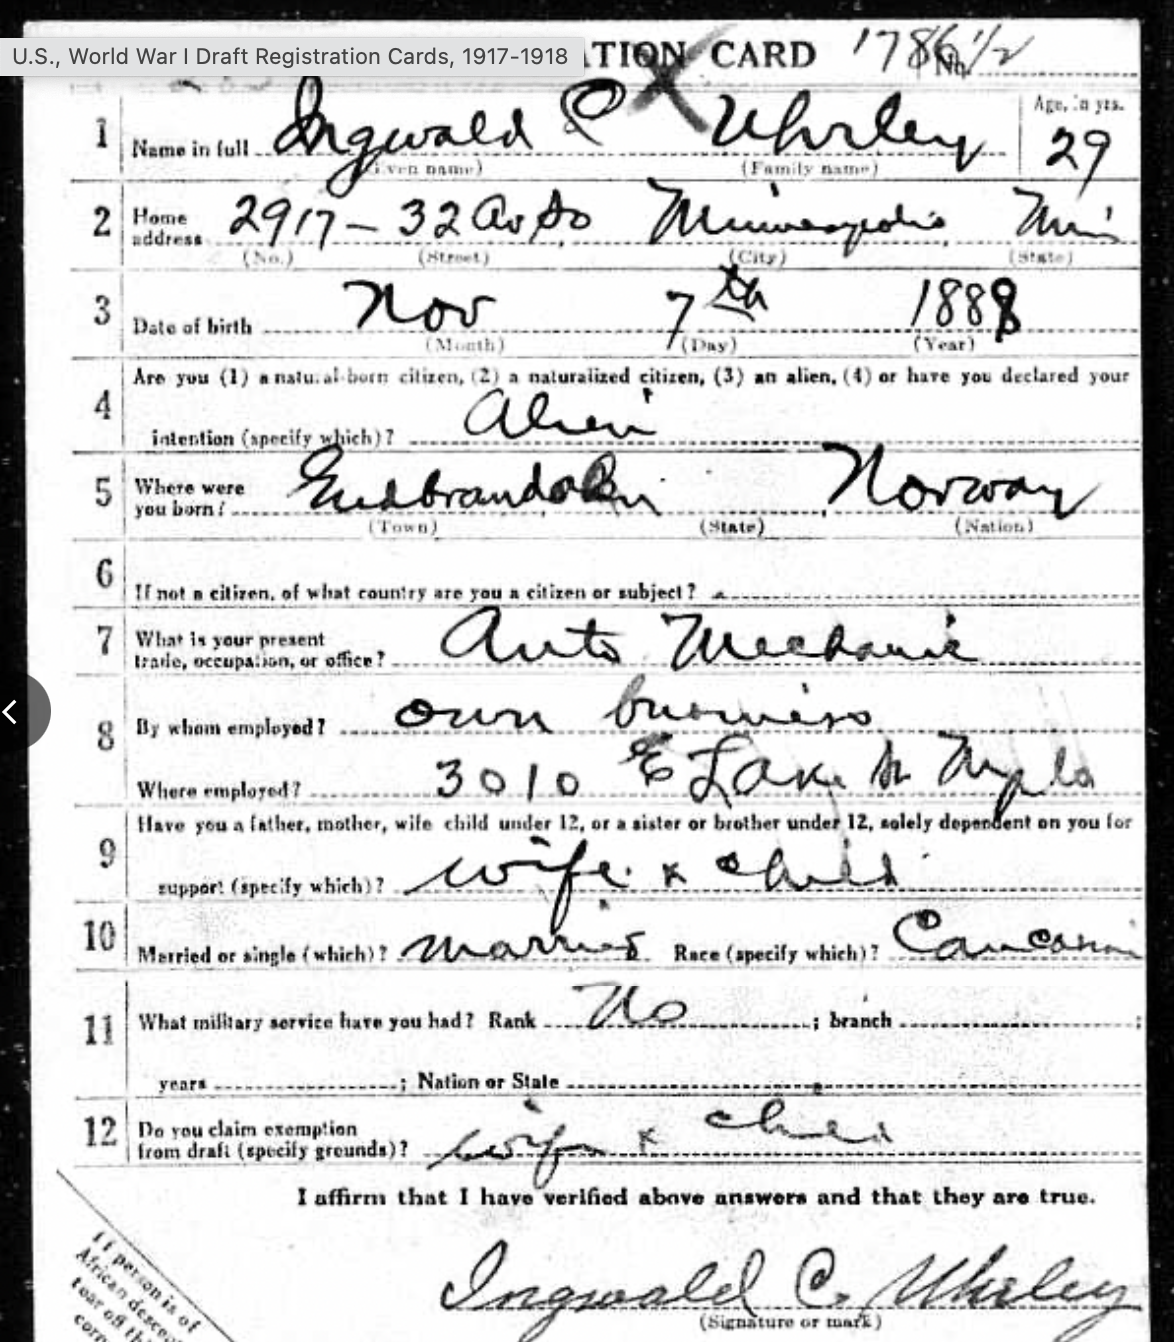 U.S., World War I Draft Registration Cards, 1917-1918
TION CARD 1786 1/2 No.
1 Name in full Ingwald C Uhrley Age, in yrs.
(Given name) (Family name) 29
2 Home address 2917 - 32 Av So Minneapolis Min
(No.) (Street) (City) (State)
3 Date of birth Nov 7th 1888
(Month) (Day) (Year)
Are you (1) a natural-born citizen, (2) a naturalized citizen, (3) an alien, (4) or have you declared your
4 intention (specify which)? Alien
5 Where were you born? Norway
(Town) (State) (Nation)
6 If not a citizen, of what country are you a citizen or subject?
7 What is your present trade, occupation, or office? Auto Mechanic
8 By whom employed? own business
Where employed? 3010 E Lake St Mpls
Have you a father, mother, wife child under 12, or a sister or brother under 12, solely dependent on you for
9 support (specify which)? wife & child
10 Married or single (which)? married Race (specify which)? Caucasian
11 What military service have you had? Rank No ; branch ;
years ; Nation or State
12 Do you claim exemption from draft (specify grounds)? wife & child
I affirm that I have verified above answers and that they are true.
Ingwald C. Uhrley
(Signature or mark)
If person is of
African descent
tear off this
corn